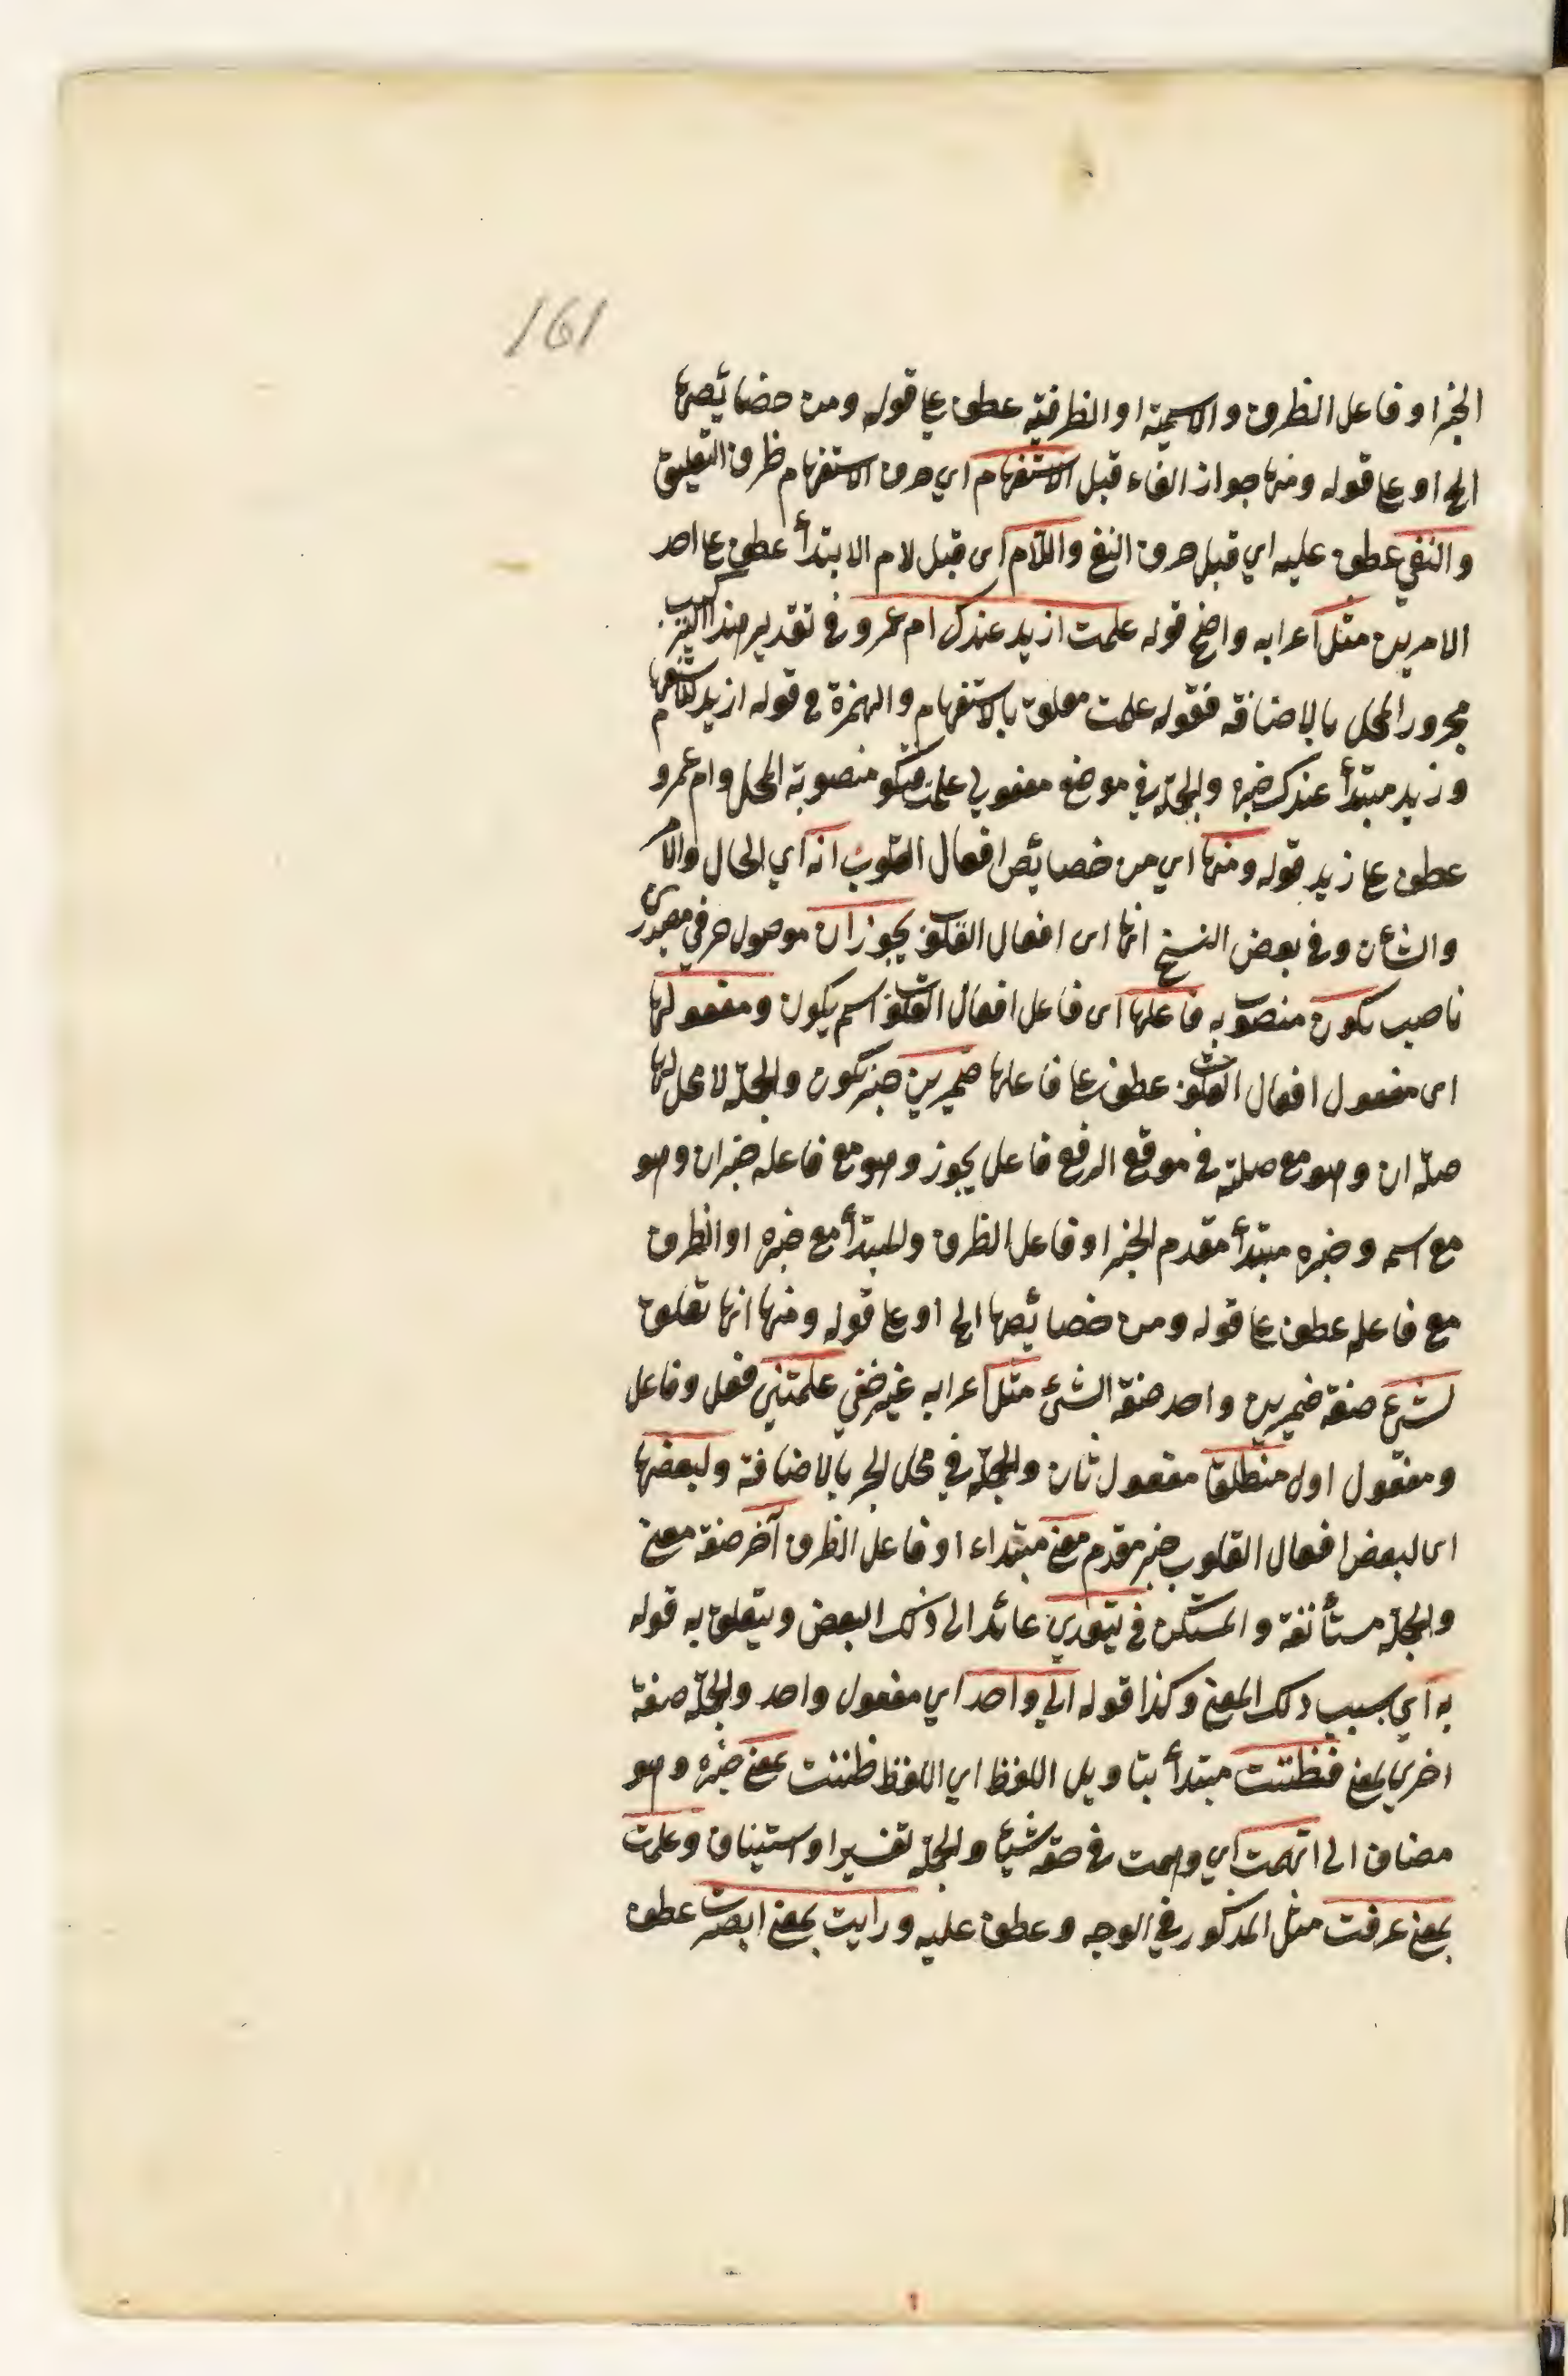 161
الخبر او فاعل الظرف والاسمية او الظرفية عطف على قوله ومن خصائصها
الخ او على قوله ومنها جواز الغاء قبل الاستفهام اي حرف الاستفهام ظرف التعليق
والنفي عطف عليه اي قبل حرف النفي واللام اى قبل لام الابتدأ عطف على احد
الامرين مثل اعرابه واضح قوله علمت ازيد عندك ام عمرو في تقدير هذا التركيب
مجرور المحل بالاضافة فقوله علمت معلق بالاستفهام والهمزة في قوله ازيد للاستفهام
وزيد مبتدأ عندك خبره والجملة في موضع مفعولي علمت فيكو منصوبة المحل وام عمرو
عطف على زيد قوله ومنها اي من خصائص افعال القلوب انه اي الحال والامر
والشأن وفي بعض النسخ انها اى افعال القلوب يجوز ان موصول حرفي مصدرى
ناصب يكون منصوب به فاعلها اى فاعل افعال القلوب اسم يكون ومفعولها
اى مفعول افعال القلوب عطف على فاعلها ضميرين خبر يكون والجملة لا محل لها
صلة ان وهو مع صلته في موقع الرفع فاعل يجوز وهو مع فاعله خبر ان وهو
مع اسمه وخبره مبتدأ مقدم الخبر او فاعل الظرف والمبتدأ مع خبره او الظرف
مع فاعله عطف على قوله ومن خصائصها الخ او على قوله ومنها انها تعلق
لشئ صفة ضميرين واحد صفة الشئ مثل اعرابه غير خفي علمتني فعل وفاعل
ومفعول اول منطلقا مفعول ثان والجملة في محل الجر بالاضافة ولبعضها
اى لبعض افعال القلوب خبر مقدم معنى مبتداء او فاعل الظرف آخر صفة معنى
والجملة مستأنفة والمستكن في يتعدي عائد الى ذلك البعض ويتعلق به قوله
به اي بسبب ذلك المعنى وكذا قوله الي واحد اي مفعول واحد والجملة صفة
اخري لمعنى فظننت مبتدأ بتاويل اللفظ اي اللفظ ظننت بمعنى خبره وهو
مضاف الى اتهمت اي وهمت في حقه شيئا والجملة تفسير او استيناف وعلمت
بمعنى عرفت مثل المذكور في الوجه وعطف عليه ورايت بمعنى ابصرت عطف